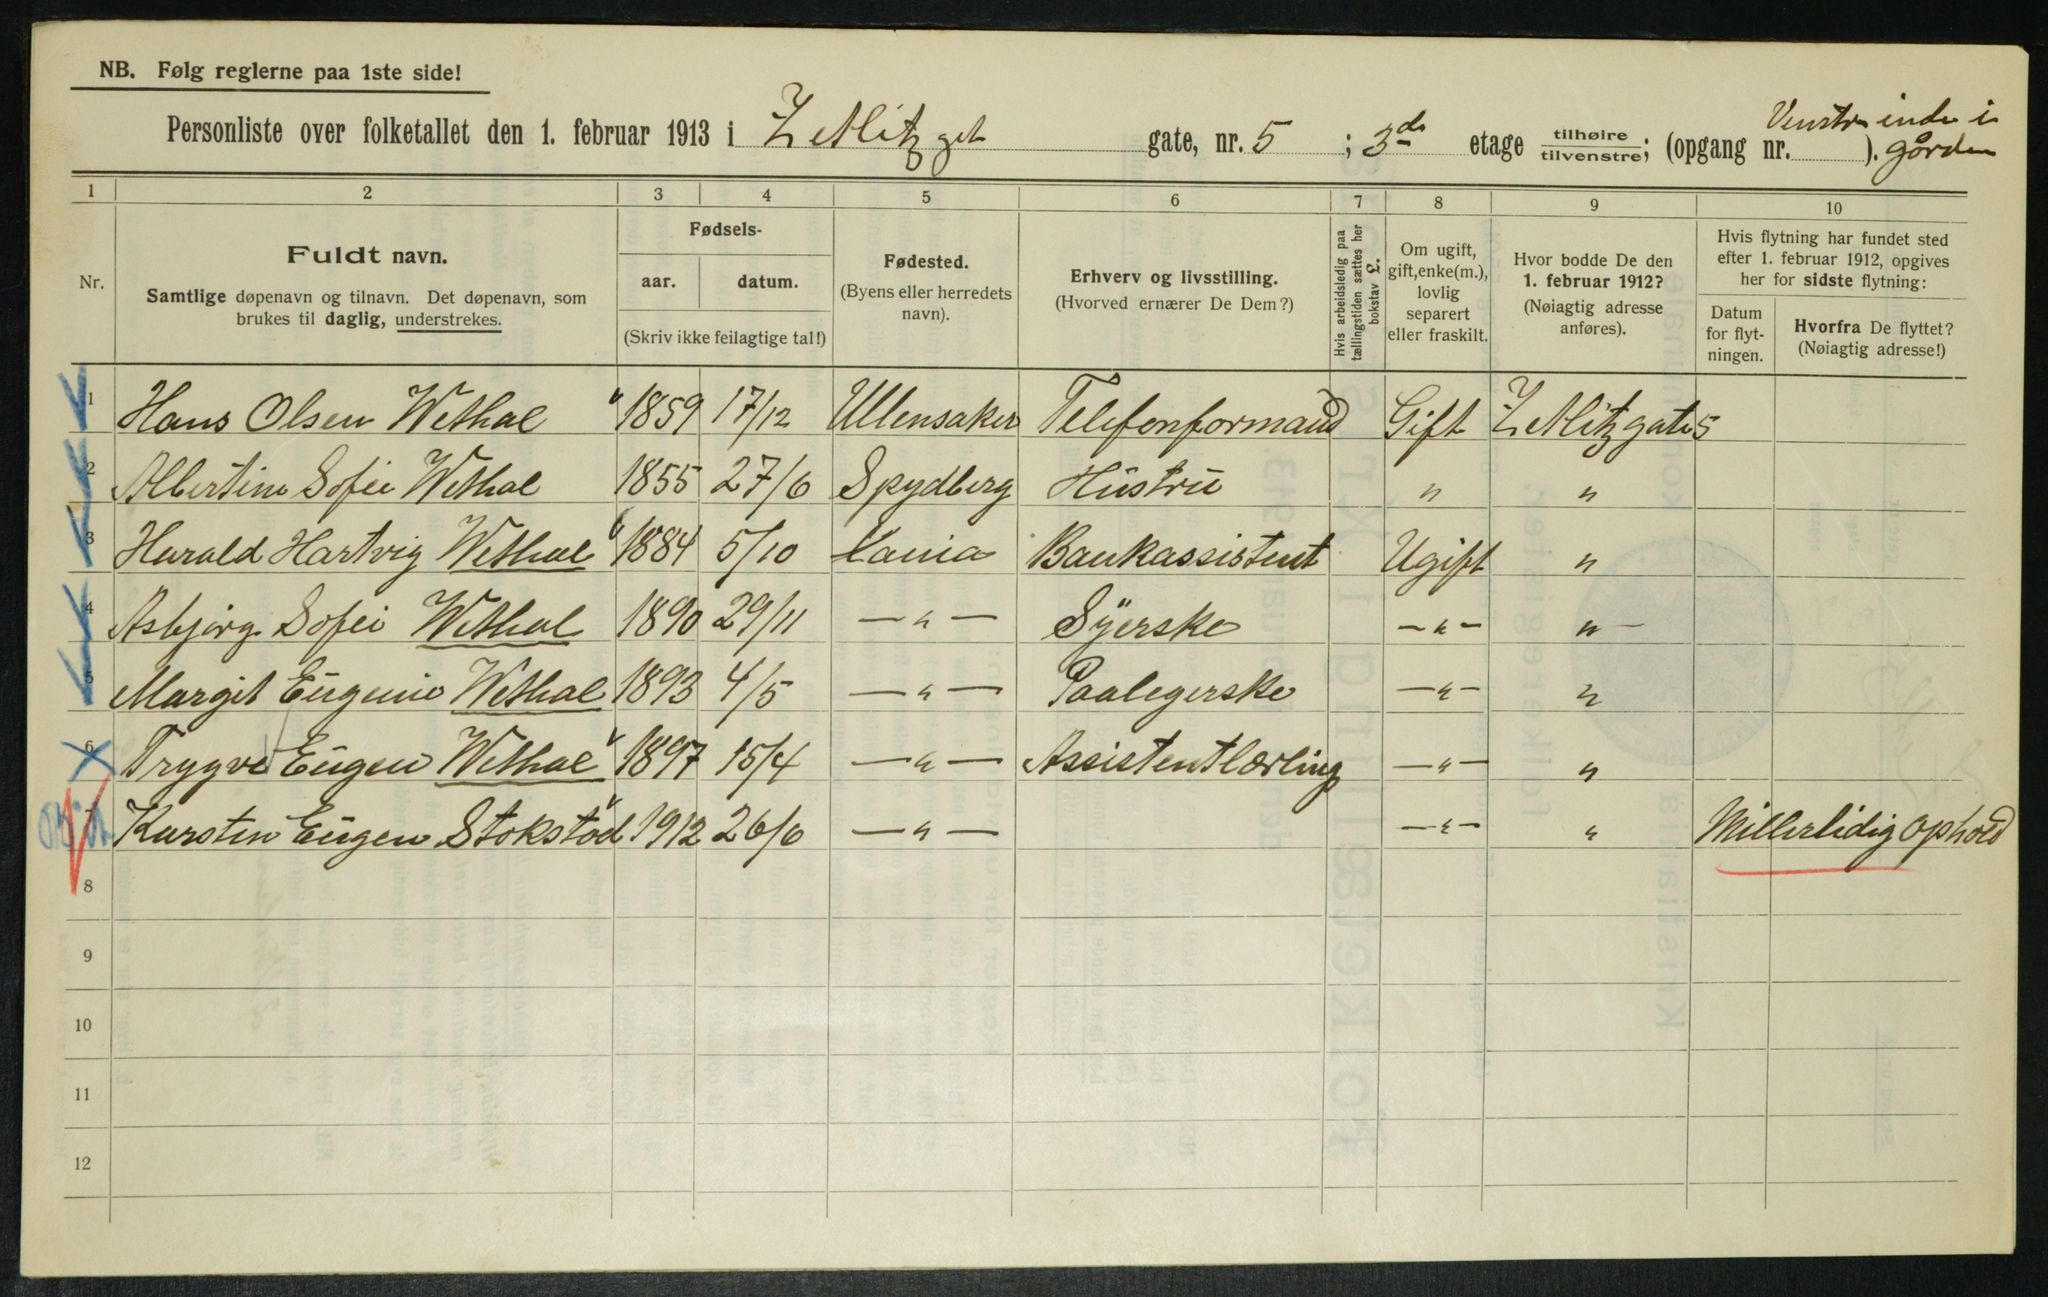 NB. Følg reglerne paa 1ste side!
Personliste over folketallet den 1. februar 1913 i Zetlitz gt gate, nr. 5 ; 3de etage tilhøire tilvenstre; (opgang nr. ). Venstre inde i gården
1 2 3 4 5 6 7 8 9 10
Nr.
Fuldt navn.
Samtlige døpenavn og tilnavn. Det døpenavn, som
brukes til daglig, understrekes.
Fødsels-
aar. datum.
(Skriv ikke feilagtige tal!)
Fødested.
(Byens eller herredets
navn).
Erhverv og livsstilling.
(Hvorved ernærer De Dem?)
Hvis arbeidsledig paa
tællingstiden sættes her
bokstav L.
Om ugift,
gift, enke(m.),
lovlig
separert
eller fraskilt.
Hvor bodde De den
1. februar 1912?
(Nøiagtig adresse
anføres).
Hvis flytning har fundet sted
efter 1. februar 1912, opgives
her for sidste flytning:
Datum
for flyt-
ningen.
Hvorfra De flyttet?
(Nøiagtig adresse!)
1 Hans Olsen Wethal " 1859 17/12 Ullensaker Telefonformand Gift Zetlitzgate 5
2 Albertine Sofie Wethal 1855 27/6 Spydberg Hustru " "
3 Harald Hartvig Wethal " 1884 5/10 Xania Bankassistent Ugift "
4 Asbjørg Sofie Wethal 1890 29/11 — " — Syerske — " — " —
5 Margit Eugenie Wethal 1893 4/5 — " — Paalegerske — " — "
6 Trygve Eugen Wethal " 1897 15/4 — " — Assistentlærling — " — "
7 Karsten Eugen Stokstad 1912 26/6 — " — — " — " Midlertidig ophold
8
9
10
11
12